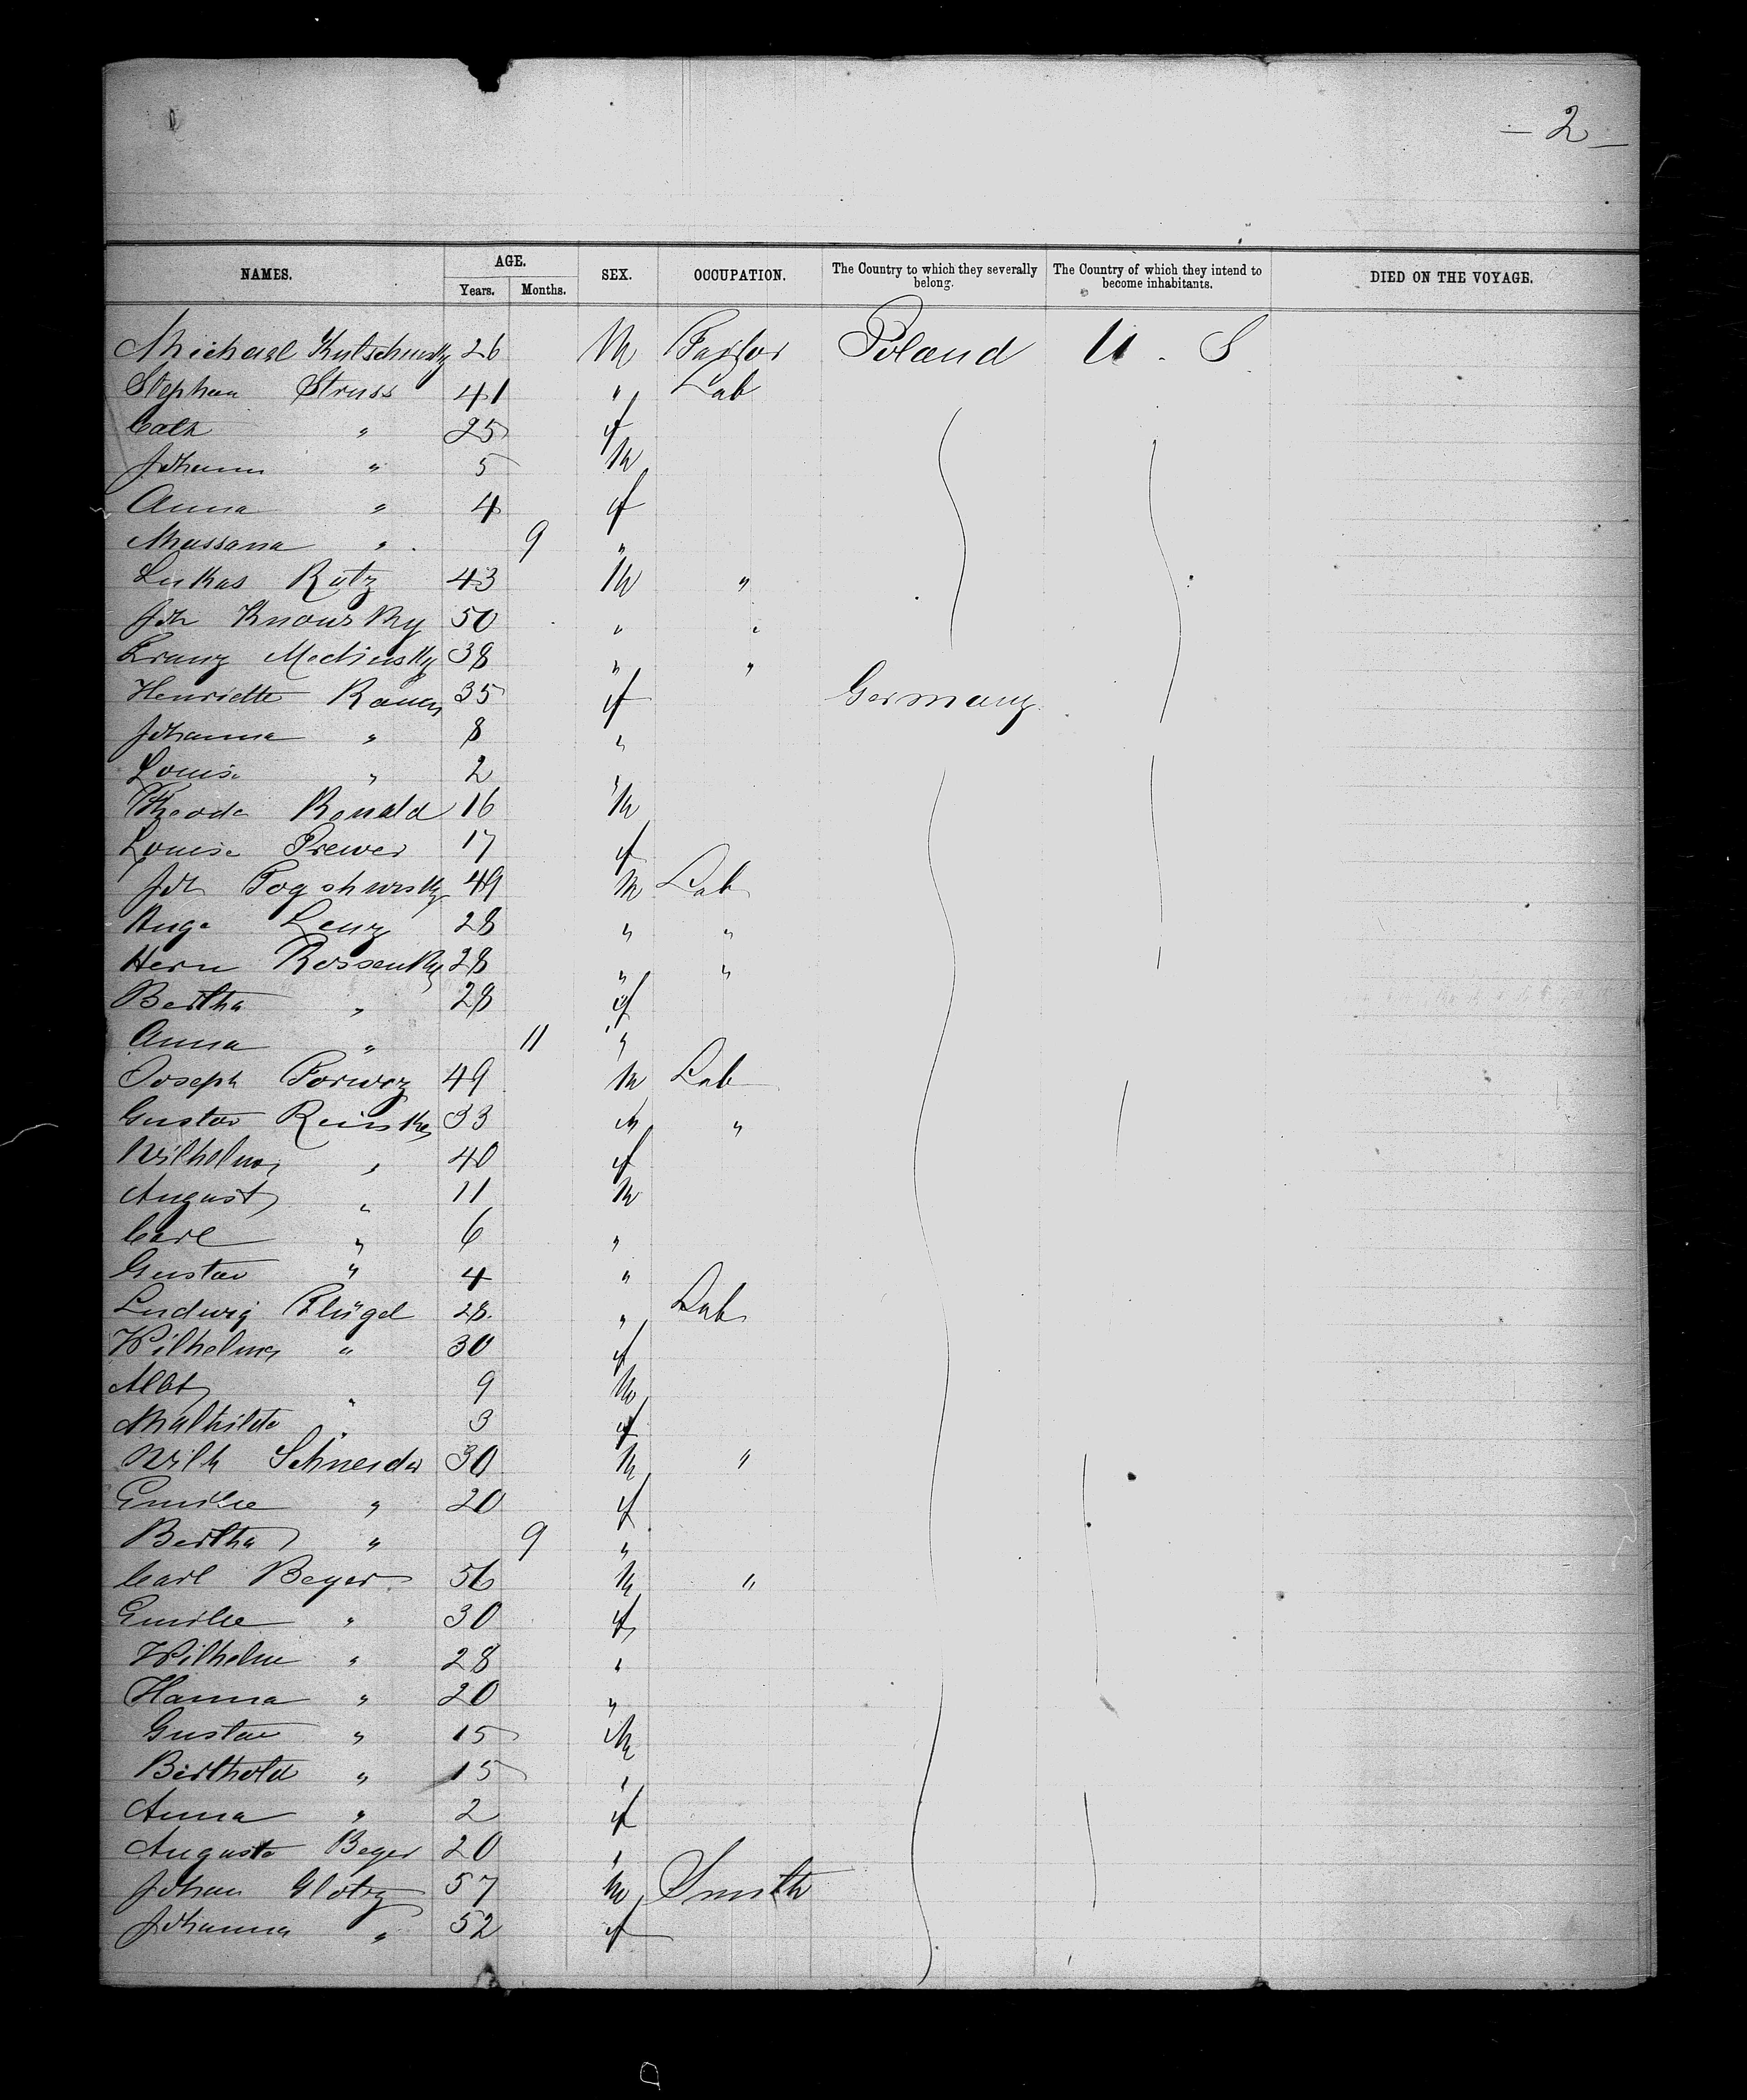 - 2 -
NAMES. AGE. SEX. OCCUPATION. The Country to which they severally belong. The Country of which they intend to become inhabitants. DIED ON THE VOYAGE.
Years. Months.
Michael 26 M Tailor Poland U. S
Stephan Struss 41 " Lab
Cath " 25 f
Johann " 5 M
Anna " 4 f
" 9 "
Lukas Rutz 43 M "
Joh Knowsky 50 " "
Franz 38 " "
Henriette 35 f Germany
Johanna " 8 "
Louise " 2 "
Ronald 16 M
Louise Prewer 17 f
Joh 49 M Lab
Aug. Lenz 28 " "
Herm 28 " "
Bertha " 28 f
Anna " 11 "
Joseph 49 M Lab
Gustav 33 M "
Wilhelm " 40 f
August " 11 M
Carl " 6 "
Gustav " 4 "
Ludwig Flügel 28 " Lab
Wilhelm " 30 f
Alb " 9 M
Mathilde " 3 f
Wilh Schneider 30 M "
Emilie " 20 f
Bertha " 9 "
Carl Beyer 56 M "
Emilie " 30 f
Wilhelm " 28 "
Hanna " 20 "
Gustav " 15 M
Berthold " 15 "
Anna " 2 f
Auguste Beyer 20 "
Johan Glotzg 57 M Smith
Johanna " 52 f